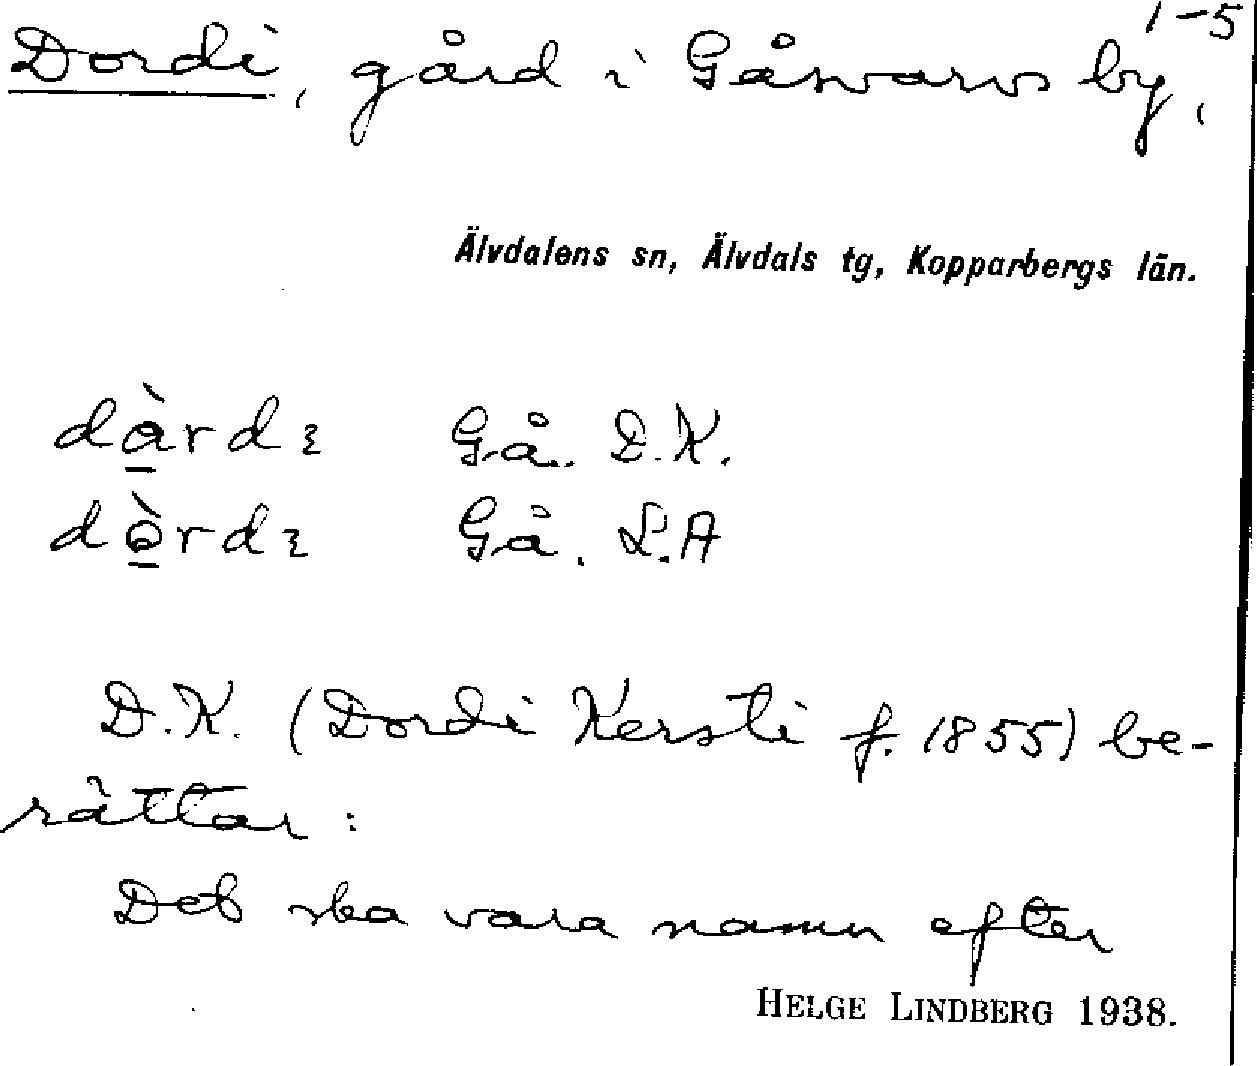 1-5
Dordi, gård i Gåsvarvs by,
Älvdalens sn, Älvdals tg, Kopparbergs län.
dàrdɩ Gå. D.K.
dòrdɩ Gå. L.A
D.K. (Dordi Kersti f. 1855) be-
rättar:
Det ska vara namn efter
HELGE LINDBERG 1938.